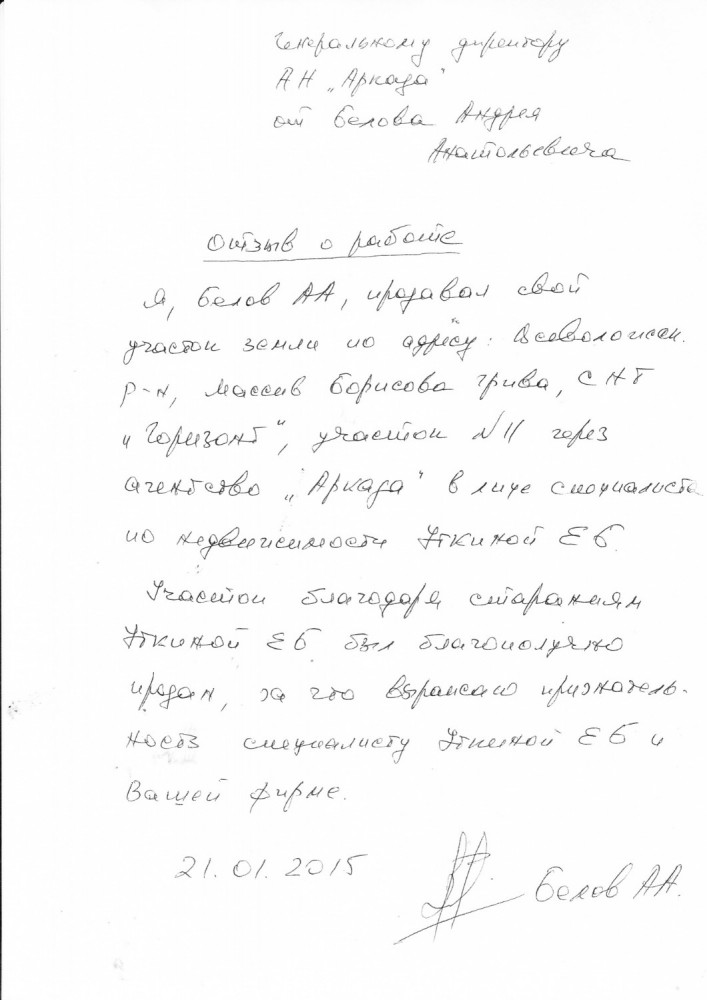 Генеральному директору
АН „Аркада"
от Белова Андрея
Анатольевича
Отзыв о работе
Я, Белов АА, продавал свой
участок земли по адресу: Всеволожск.
р-н, массив Борисова грива, СНТ
„Горизонт", участок №11 через
агентство „Аркада" в лице специалиста
по недвижимости Уткиной ЕБ
Участок благодаря стараниям
Уткиной ЕБ был благополучно
продан, за что выражаю признатель-
ность специалисту Уткиной ЕБ и
Вашей фирме.
21.01.2015
Белов АА.